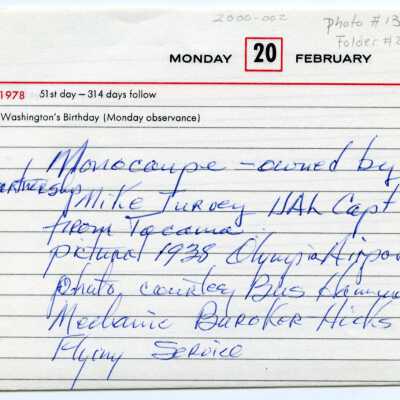 2000-002
photo #13
Folder #2
MONDAY 20 FEBRUARY
1978 51st day – 314 days follow
Washington's Birthday (Monday observance)
Monocoupe – owned by
Mike Turvey UAL Capt
from Tacoma
picture 1938 Olympia Airpor
photo courtesy Bus
Mechanic Buroker-Hicks
Flying Service